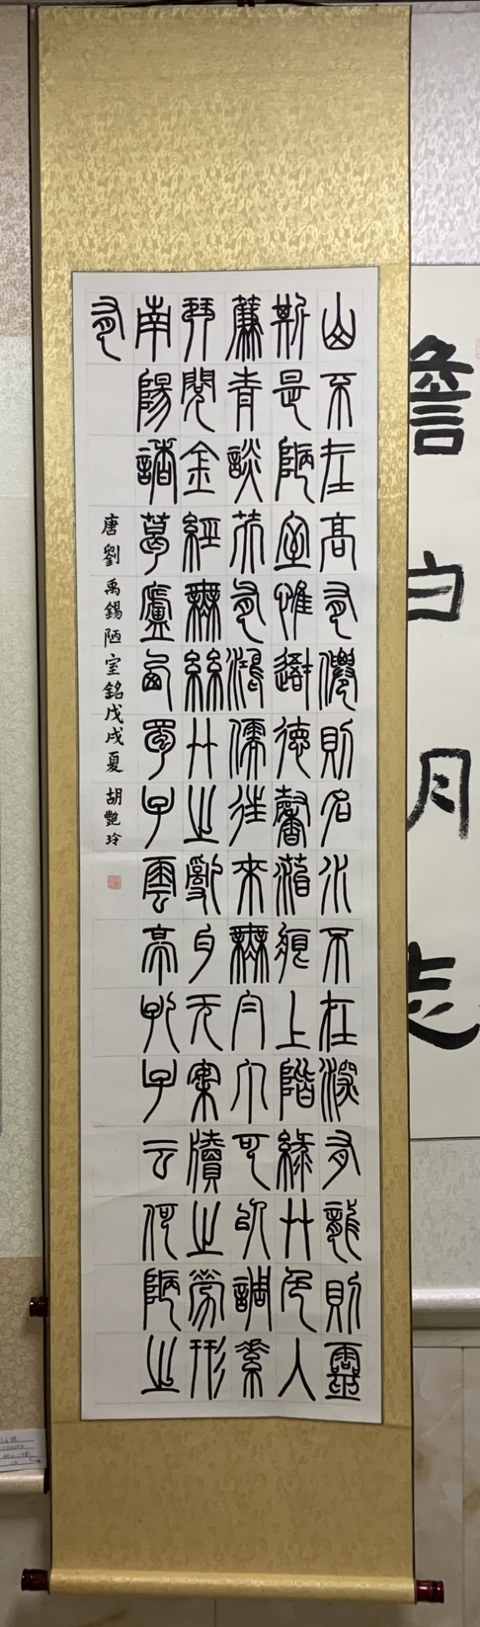 山不在高有僊則名水不在深有龍則靈
斯是陋室惟吾德馨菭痕上階綠艸色入
簾青談笑有鴻儒往來無白丁可以調素
琴閱金經無絲竹之亂耳无案牘之勞形
南陽諸葛廬西蜀子雲亭孔子云何陋之
有
唐劉禹錫陋室銘戊戌夏 胡艷玲